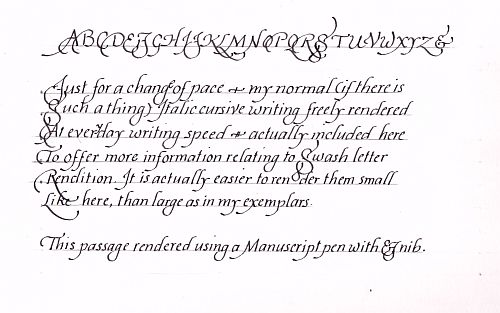 ABCDEFGHIJKLMNOPQRSTUVWXYZ&
Just for a change of pace + my normal (if there is
Such a thing) Italic cursive writing freely rendered
At everyday writing speed + actually included here
To offer more information relating to Swash letter
Rendition. It is actually easier to render them small
Like here, than large as in my exemplars.
This passage rendered using a Manuscript pen with nib.